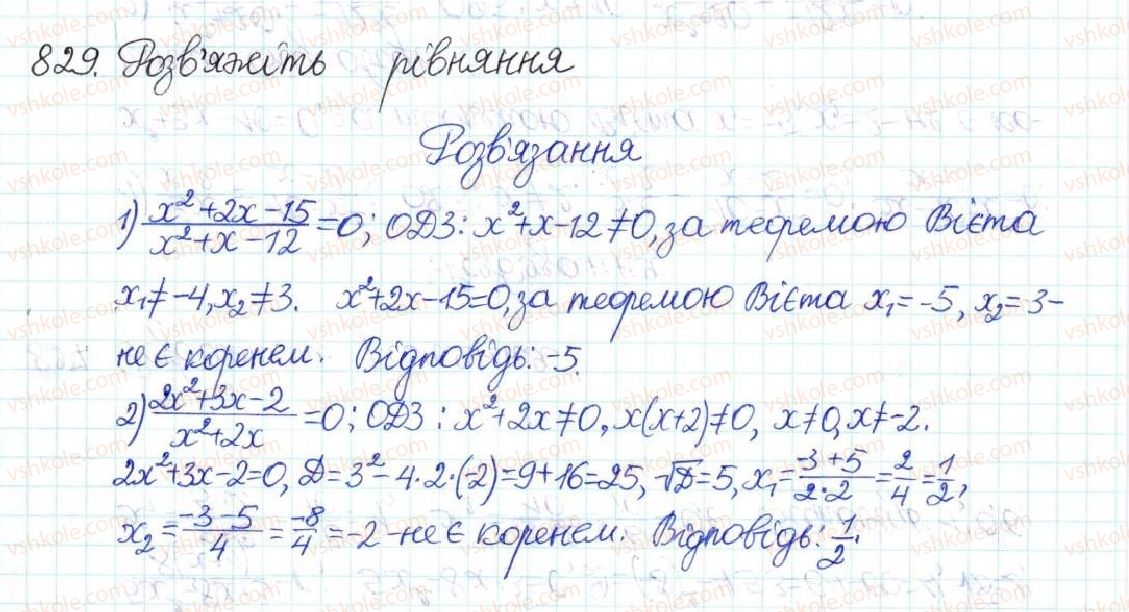 829. Розв'яжіть рівняння
Розв'язання
1) (x²+2x-15)/(x²+x-12)=0; ОДЗ: x²+x-12≠0, за теоремою Вієта
x₁≠-4, x₂≠3. x²+2x-15=0, за теоремою Вієта x₁=-5, x₂=3-
не є коренем. Відповідь: -5.
2) (2x²+3x-2)/(x²+2x)=0; ОДЗ: x²+2x≠0, x(x+2)≠0, x≠0, x≠-2.
2x²+3x-2=0, D=3²-4·2·(-2)=9+16=25, √D=5, x₁=(-3+5)/(2·2)=2/4=1/2,
x₂=(-3-5)/4=-8/4=-2-не є коренем. Відповідь: 1/2.